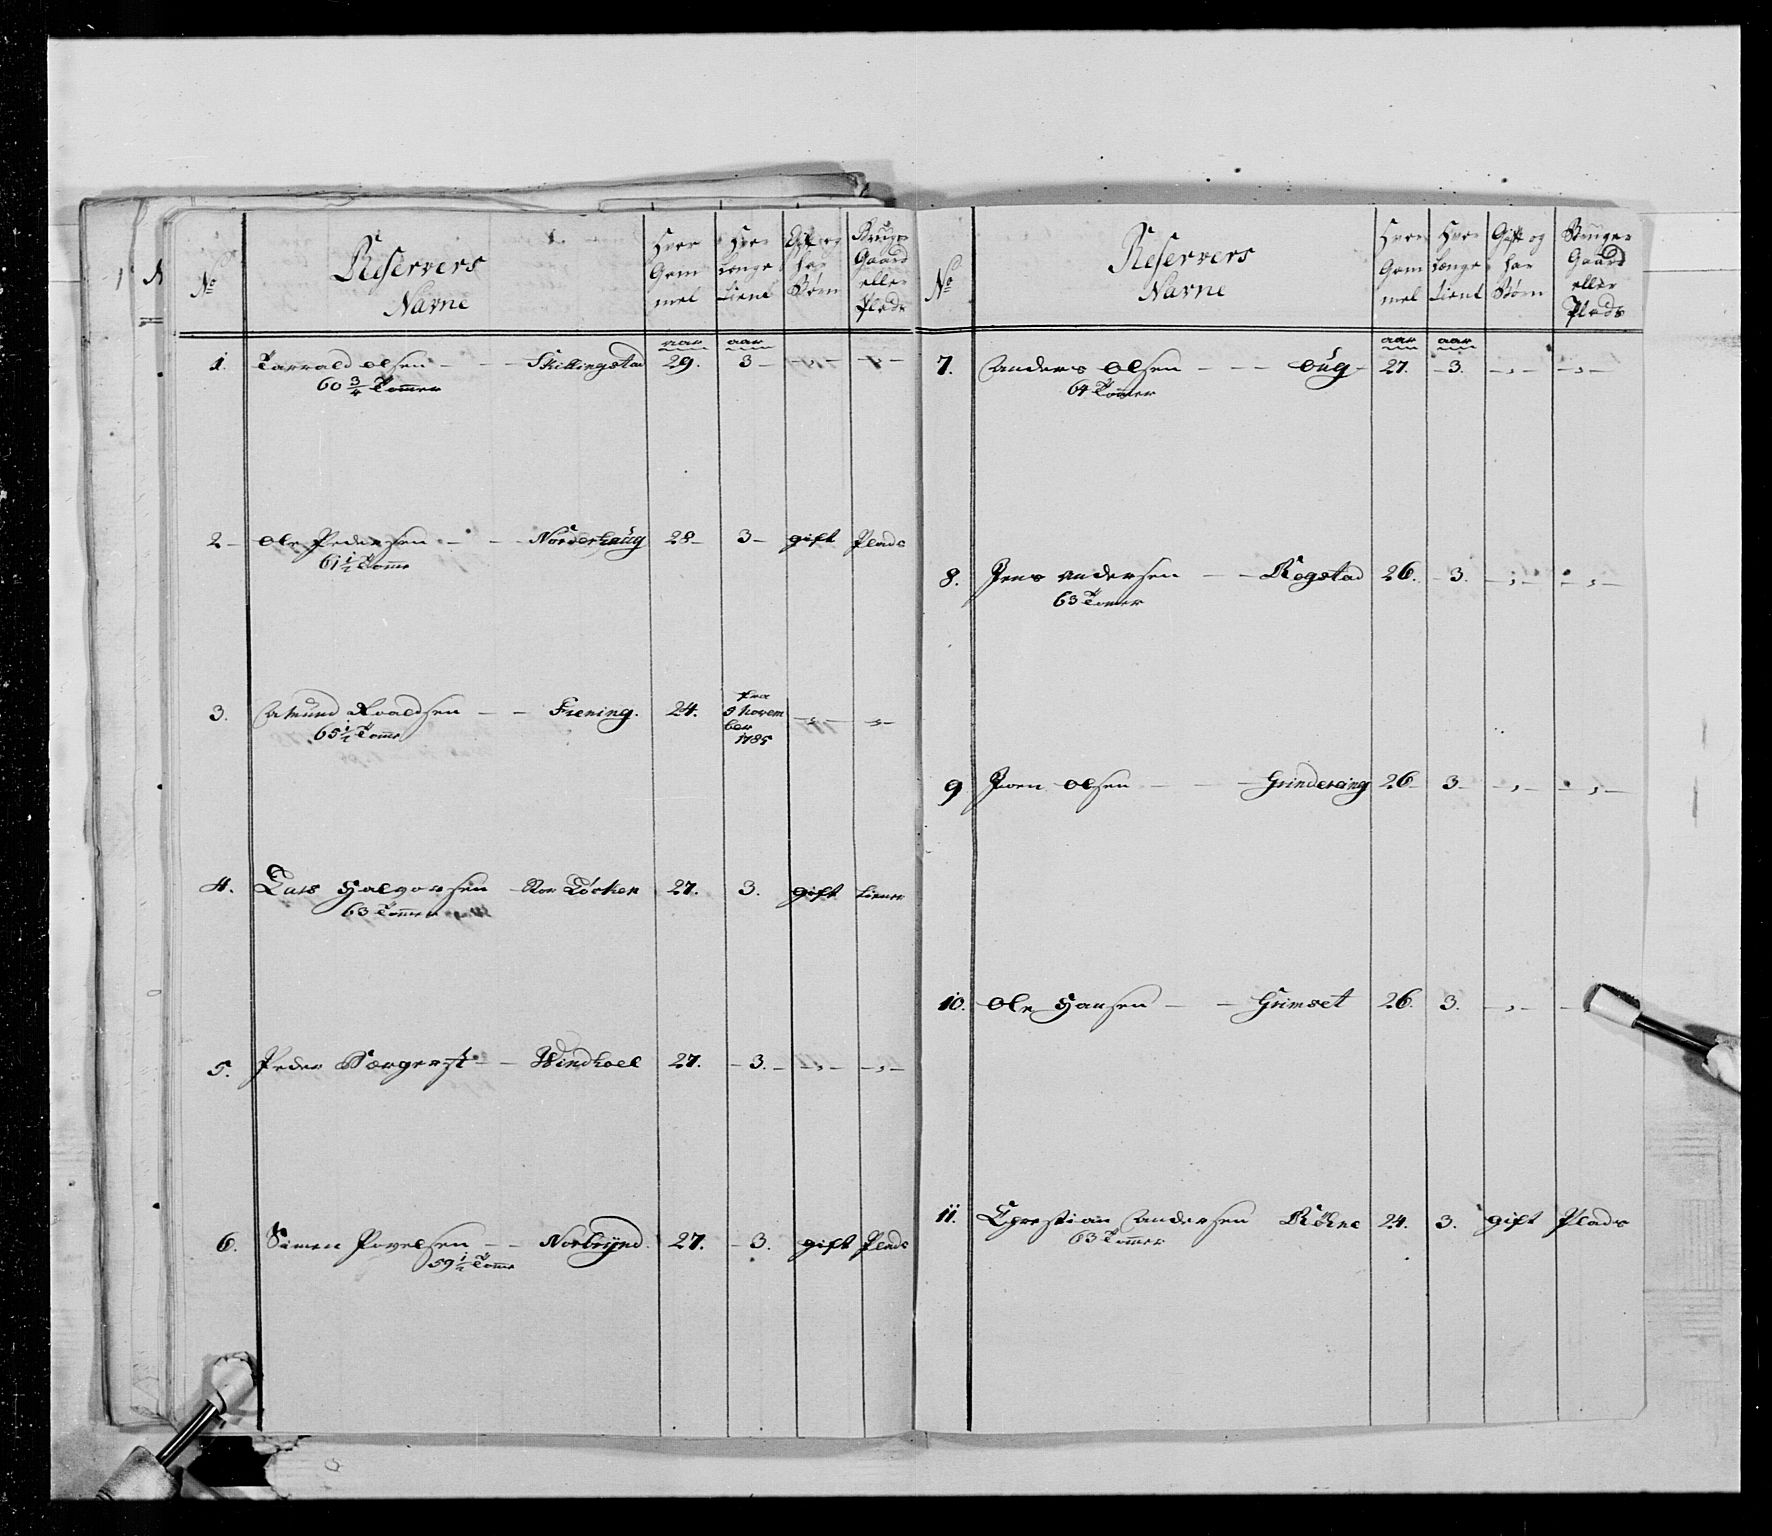 No
Reservers
Navne
Hvor Gammel
Hvor Længe tient
Gift og har Børn
Bruger Gaard eller Plads
aar aar
1. Tarrald Olsen - - Skillingstad 29. 3 - - „ - - „ -
60 3/4 Tommer
2 - Ole Pedersen - - Norderhaug 28 - 3 - gift Plads
61 1/2 Tomme
3. Amund Roaldsen - - Frening. 24. fra 9 Novem ber 1785 - „ - - „ -
65 1/2 Tomme
4. Lars Halvorsen Stor Løcken 27. 3. gift tiener
63 Tommer
5. Peder Børgerst - - Windhoel 27. - 3. - - „ - - „ -
6. Simen Povelsen - - Norbÿnd. 27. - 3. gift Plads
59 1/2 Tomme
No
Reservers
Navne
Hvor Gam mel
Hvor Længe tient
Gift og har Børn
Bruger Gaard eller Plads
aar aar
7. Anders Olsen - - - Oug - 27. - 3. - „ - - „ -
64 Tommer
8. Jens Andersen - - Rogstad 26. - 3. - „ - - „ -
63 Tomer
9 Joen Olsen - - - Grindereing 26 - 3 - - „ - - „ -
10. Ole Hansen - - Grimset 26. 3. - „ - -
11. Christian Andersen Röhne 24. 3. gift Plads
63 Tommer